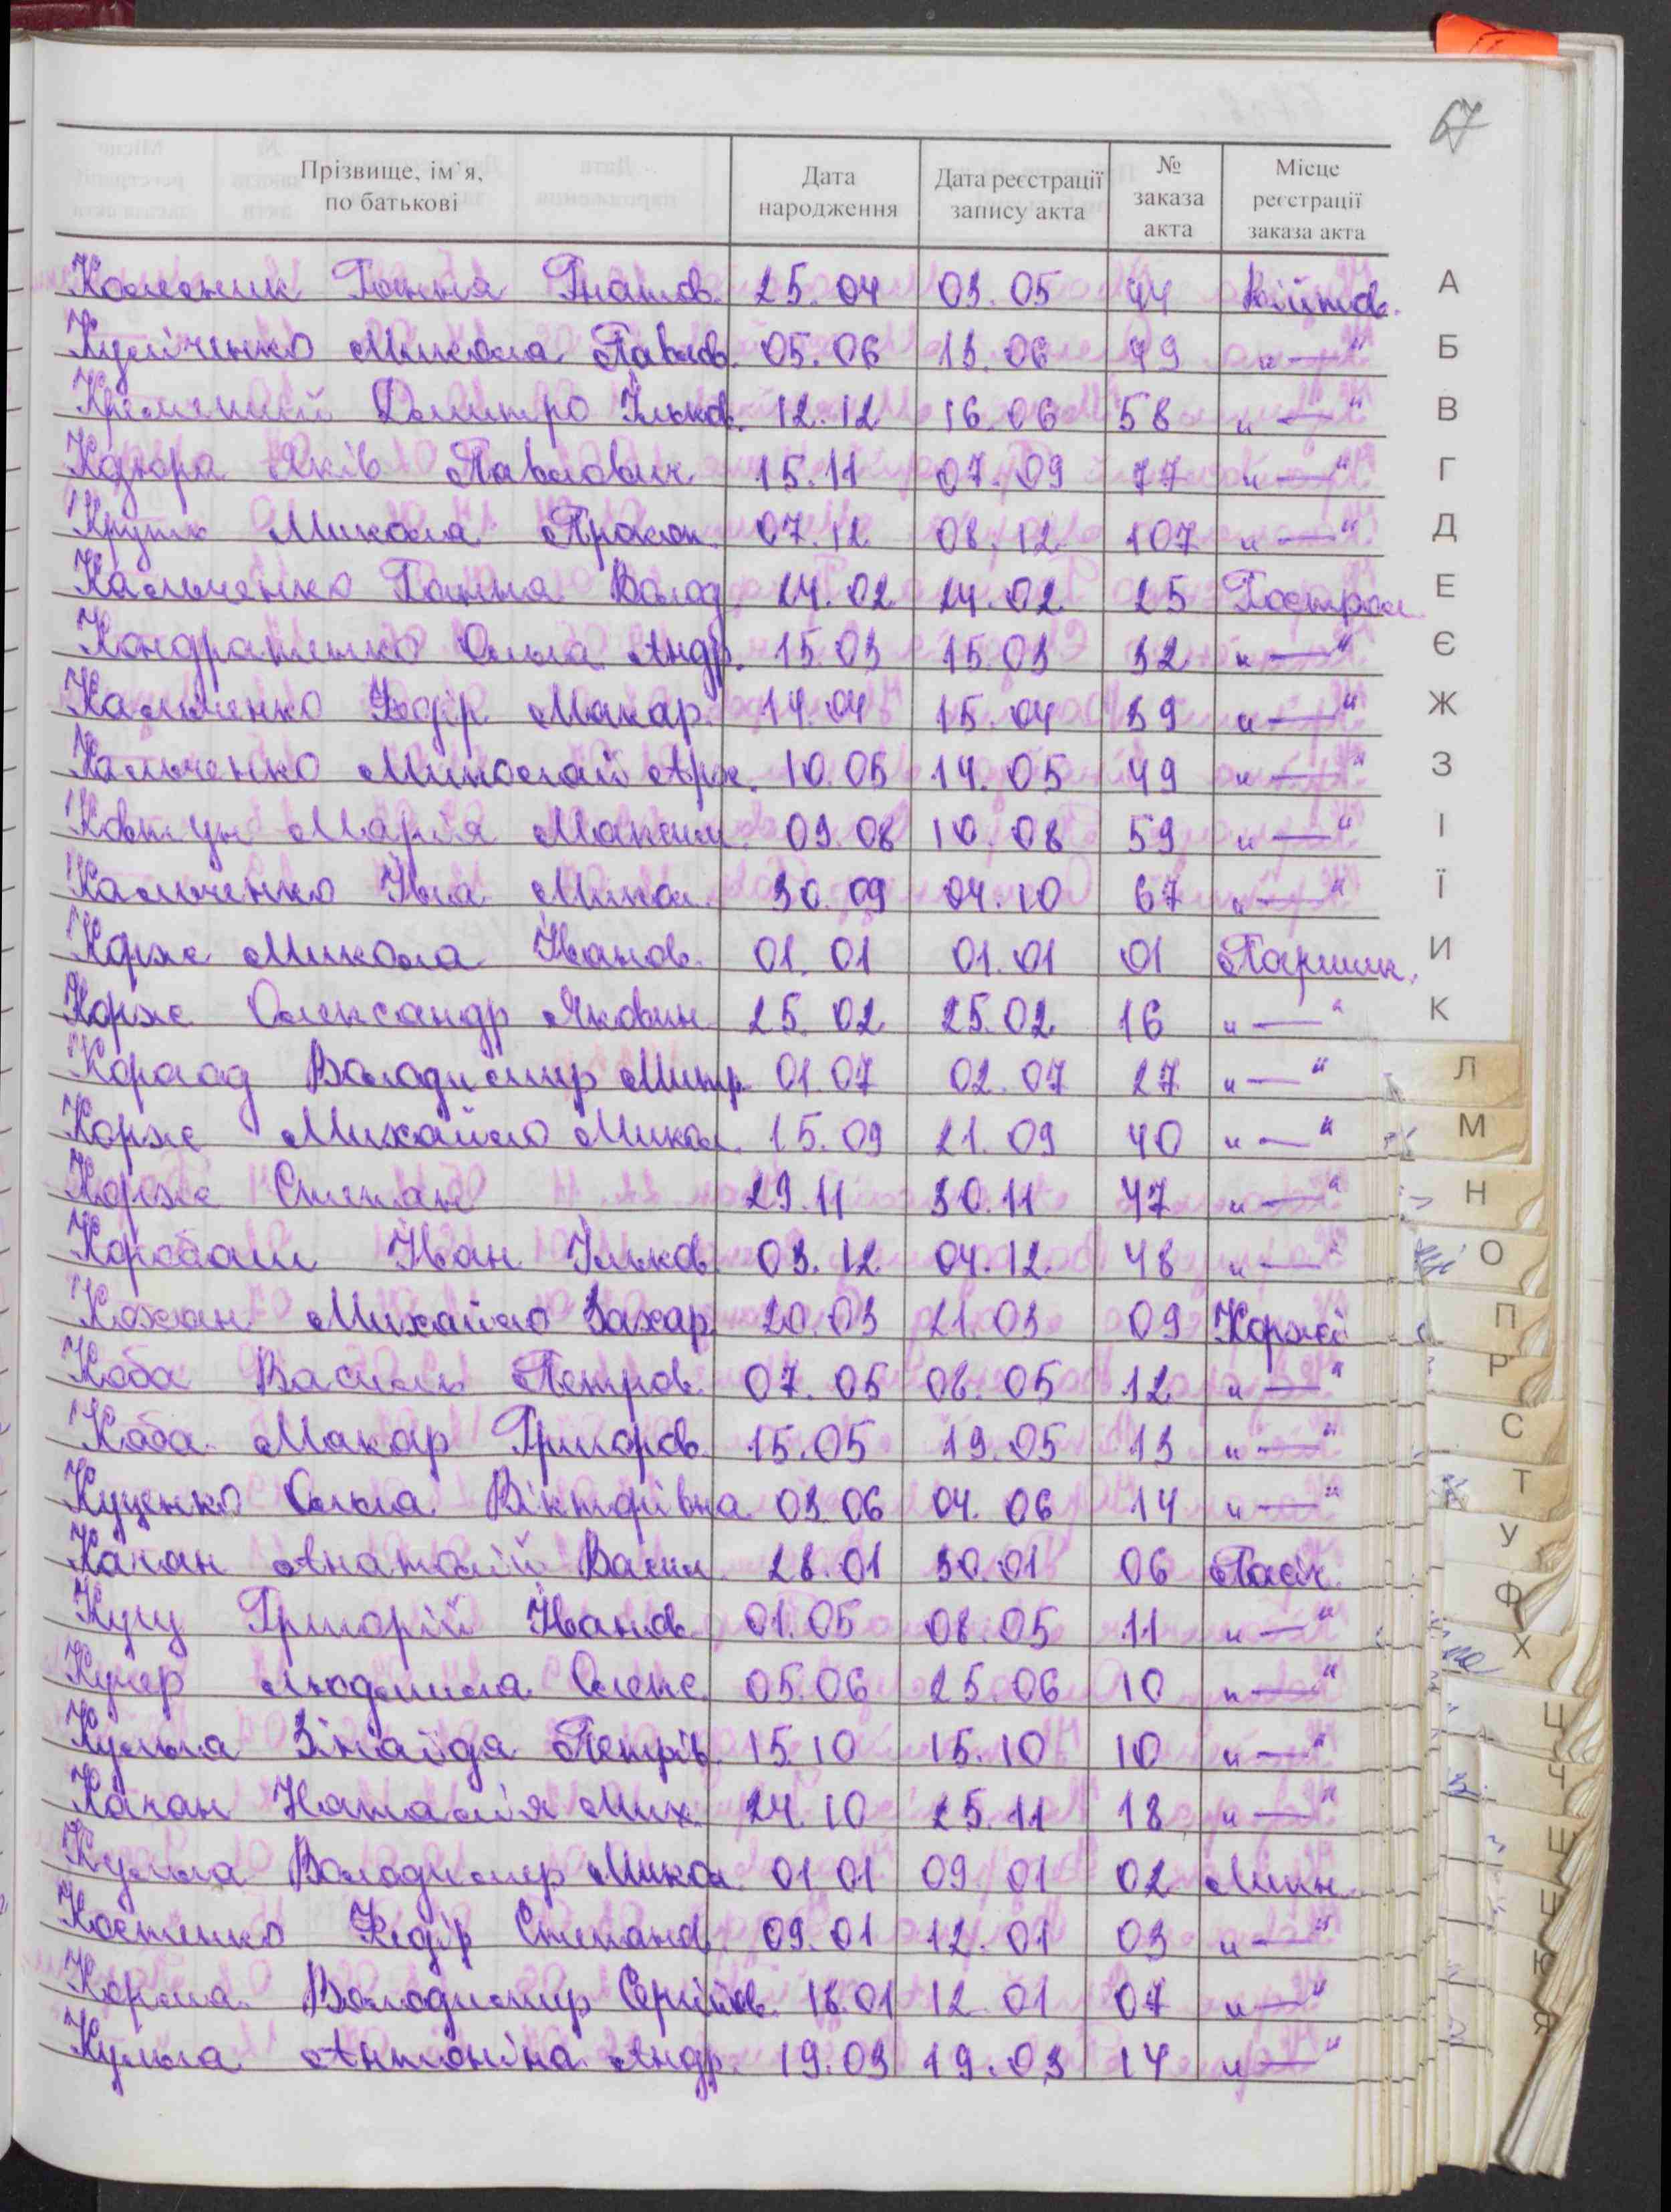 67
Прізвище, ім'я, по батькові Дата народження Дата реєстрації запису акта № заказа акта Місце реєстрації заказа акта
Колесник Ганна Гнатов. 25.04 03.05 44 Війтов.
Куліченко Микола Павлов. 05.06 13.06 49 "—"
Кремяний Дмитро Ільков. 12.12 16.06 58 "—"
Коцюра Яків Павлович 15.11 07.09 77 "—"
Круть Микола Прокоп. 07.12 08.12 107 "—"
Кальченко Ганна Волод. 24.02 24.02 25 Гострол
Кондратенко Ольга Андр. 15.03 15.03 32 "—"
Кальченко Федір Макар. 14.04 15.04 39 "—"
Кальченко Миколай Арх. 10.05 14.05 49 "—"
Ковтун Марія Максим. 09.08 10.08 59 "—"
Кальченко Ївга Микол. 30.09 04.10 67 "—"
Корже Микола Іванов. 01.01 01.01 01 Паришк.
Корже Олександр Якович 25.02 25.02 16 "—"
Володимир Митр. 01.07 02.07 27 "—"
Корже Михайло Микол. 15.09 21.09 40 "—"
Корже Степан 29.11 30.11 47 "—"
Коробаш Іван Ільков. 03.12 04.12 48 "—"
Кохан Михайло Захар. 20.03 21.03 09 Коржі
Коба Василь Петров. 07.05 08.05 12 "—"
Коба Макар Григоров. 15.05 19.05 13 "—"
Куценко Ольга Вікторівна 03.06 04.06 14 "—"
Качан Анатолій Васил. 28.01 30.01 06 Пасіч.
Куцу Григорій Іванов. 01.05 08.05 11 "—"
Кучер Людмила Олекс. 05.06 25.06 10 "—"
Кульга Зінаїда Петрів. 15.10 15.10 10 "—"
Качан Наталія Мих. 24.10 25.11 18 "—"
Кульга Володимир Микол. 01.01 09.01 02
Костенко Федір Степанов. 09.01 12.01 03 "—"
Володимир Сергійов. 18.01 12.01 07 "—"
Кульга Антоніна Андр. 19.03 19.03 14 "—"
А
Б
В
Г
Д
Е
Є
Ж
З
І
Ї
И
К
Л
М
Н
О
П
Р
С
Т
У
Ф
Х
Ц
Ч
Ш
Щ
Ю
Я